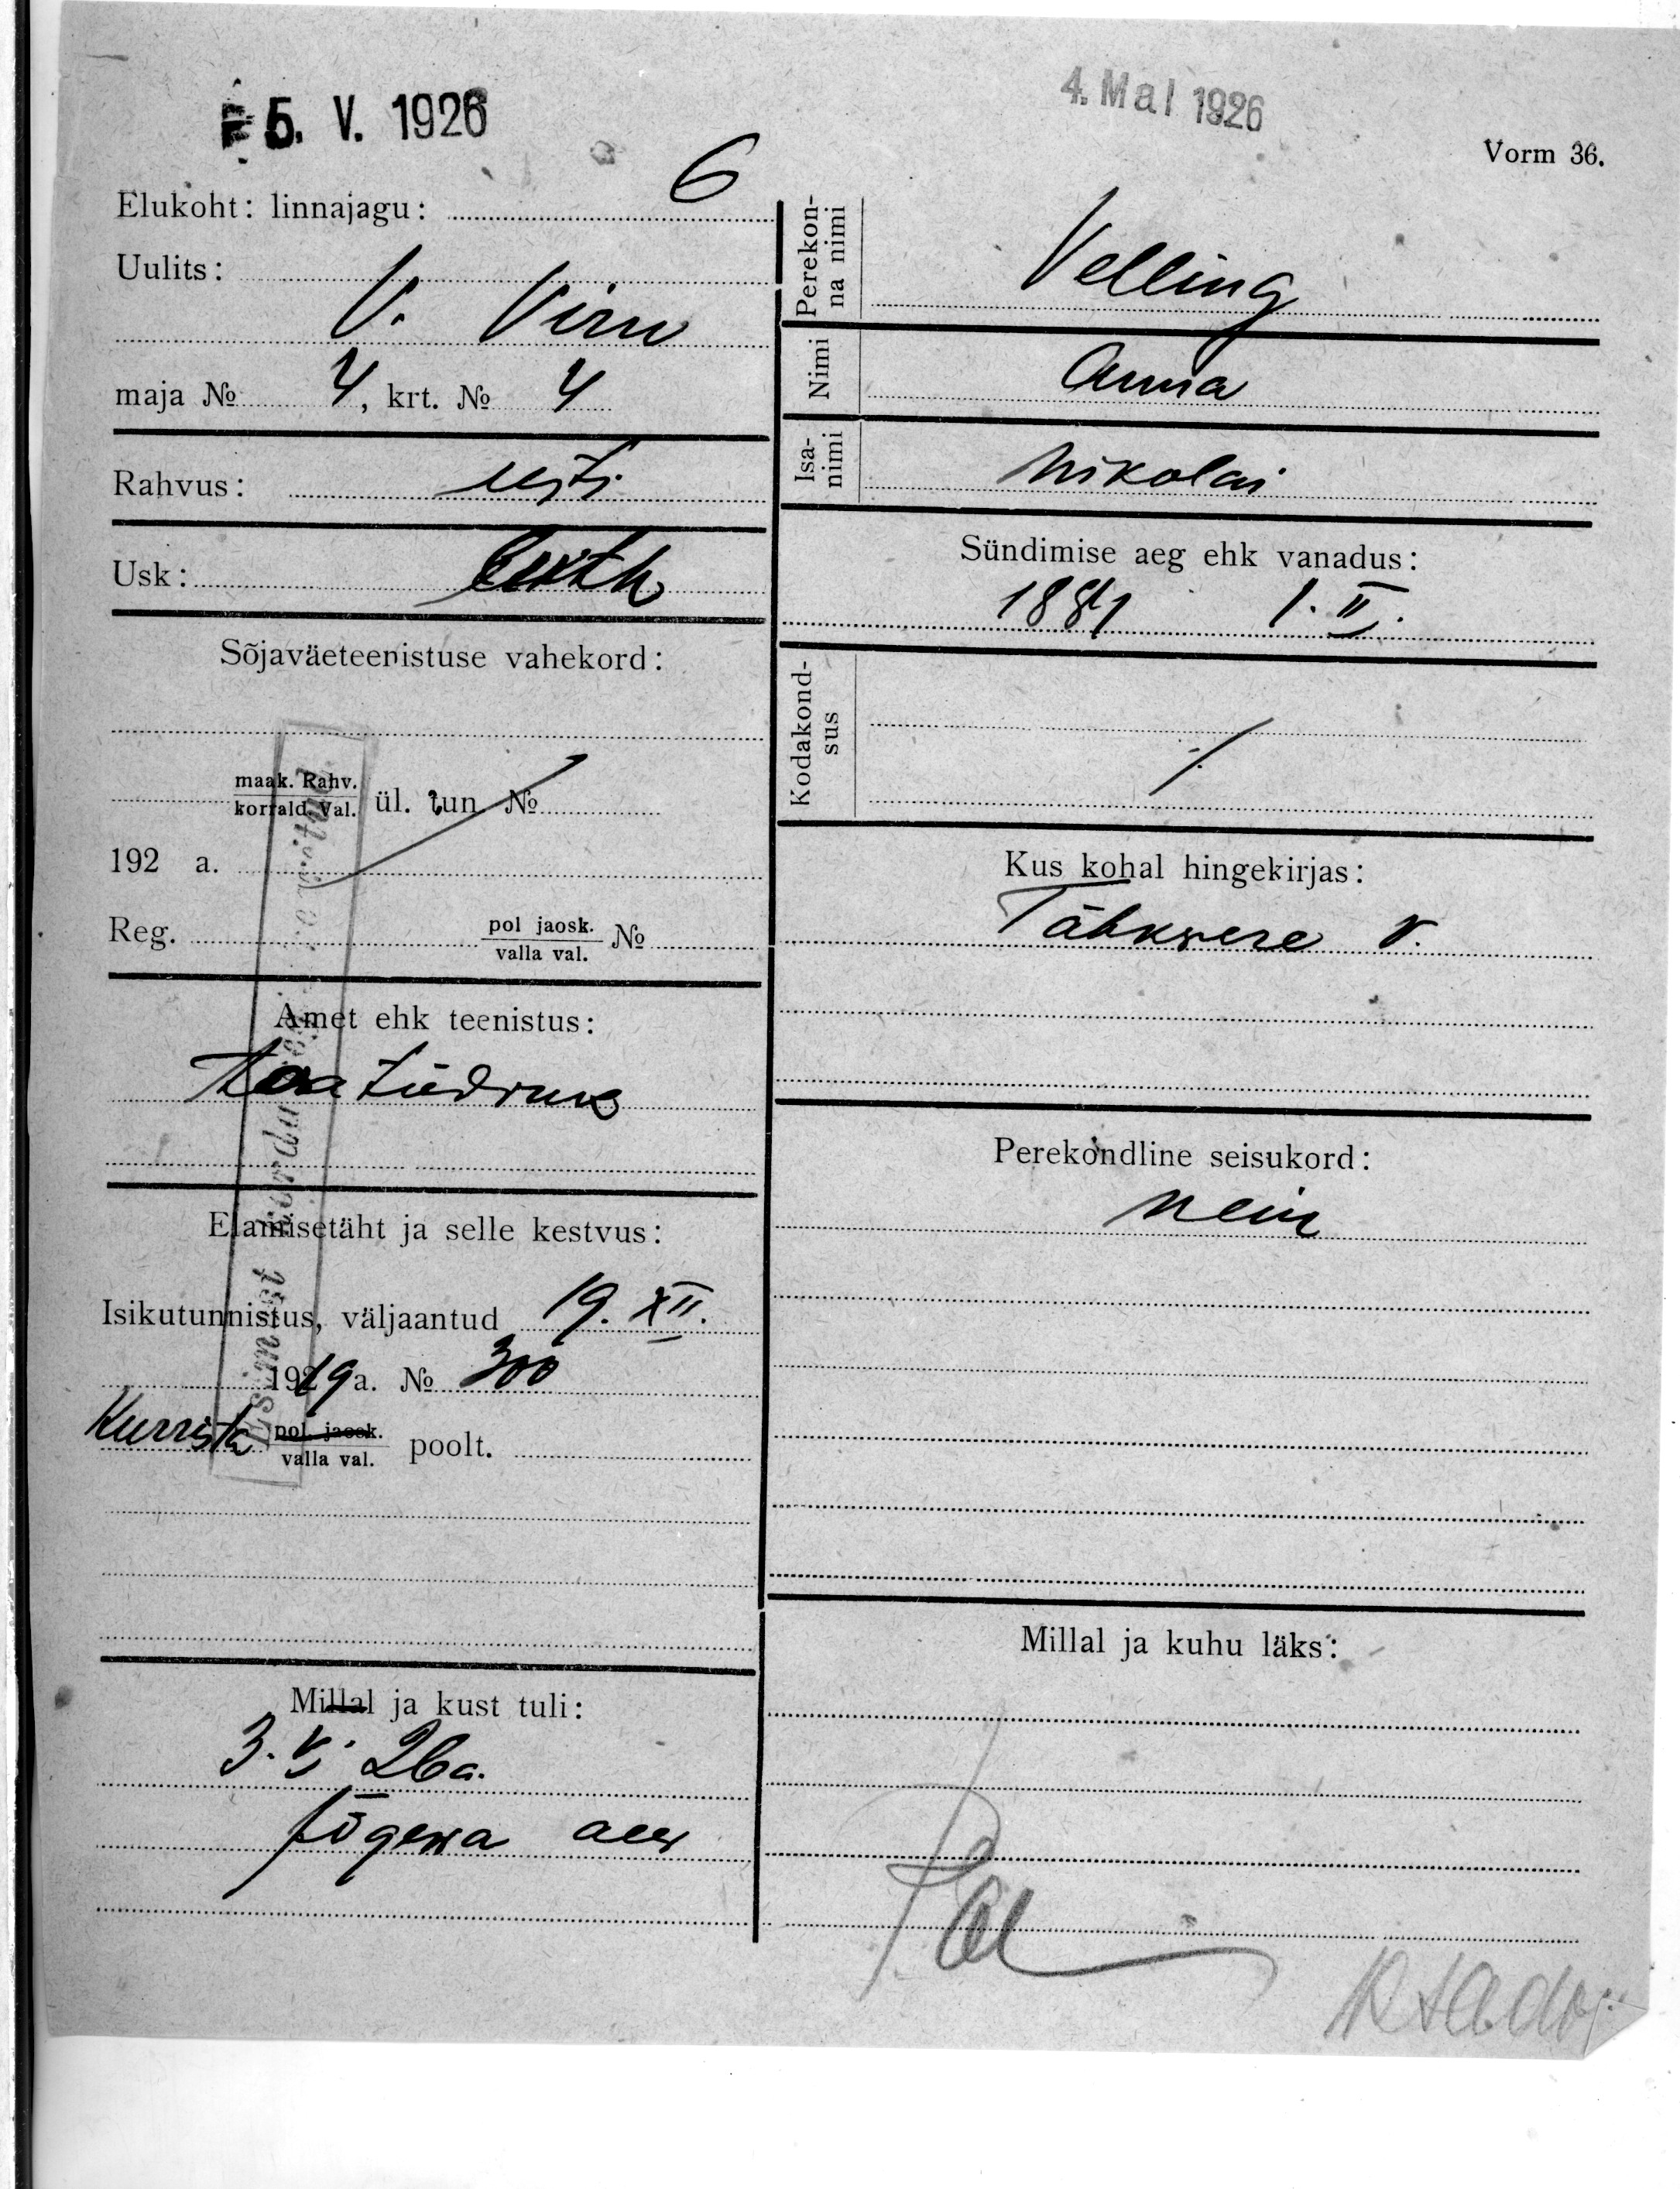 5. V. 1926
4. Mai 1926
Vorm 36.
Elukoht: linnajagu: 6
Uulits:
V. Viru
maja № 4, krt. № 4
Rahvus: eesti
Usk: luth
Sõjaväeteenistuse vahekord:
maak. Rahv.
korrald. Val. ül. tun. №
192 a.
Reg. pol jaosk.
valla val. №
Amet ehk teenistus:
Toatüdruk
Elamisetäht ja selle kestvus:
Isikutunnistus, väljaantud 19. XII.
1919 a. № 300
Kurrista pol. jaosk.
valla val. poolt.
Millal ja kust tuli:
3. V. 26 a.
Jõgewa alew
Perekon-
na nimi
Velling
Nimi
Anna
Isa-
nimi
Nikolai
Sündimise aeg ehk vanadus:
1. II.
Kodakond-
sus
Kus kohal hingekirjas:
Tähkwere v.
Perekondline seisukord:
nein
Millal ja kuhu läks:
Esimest korda